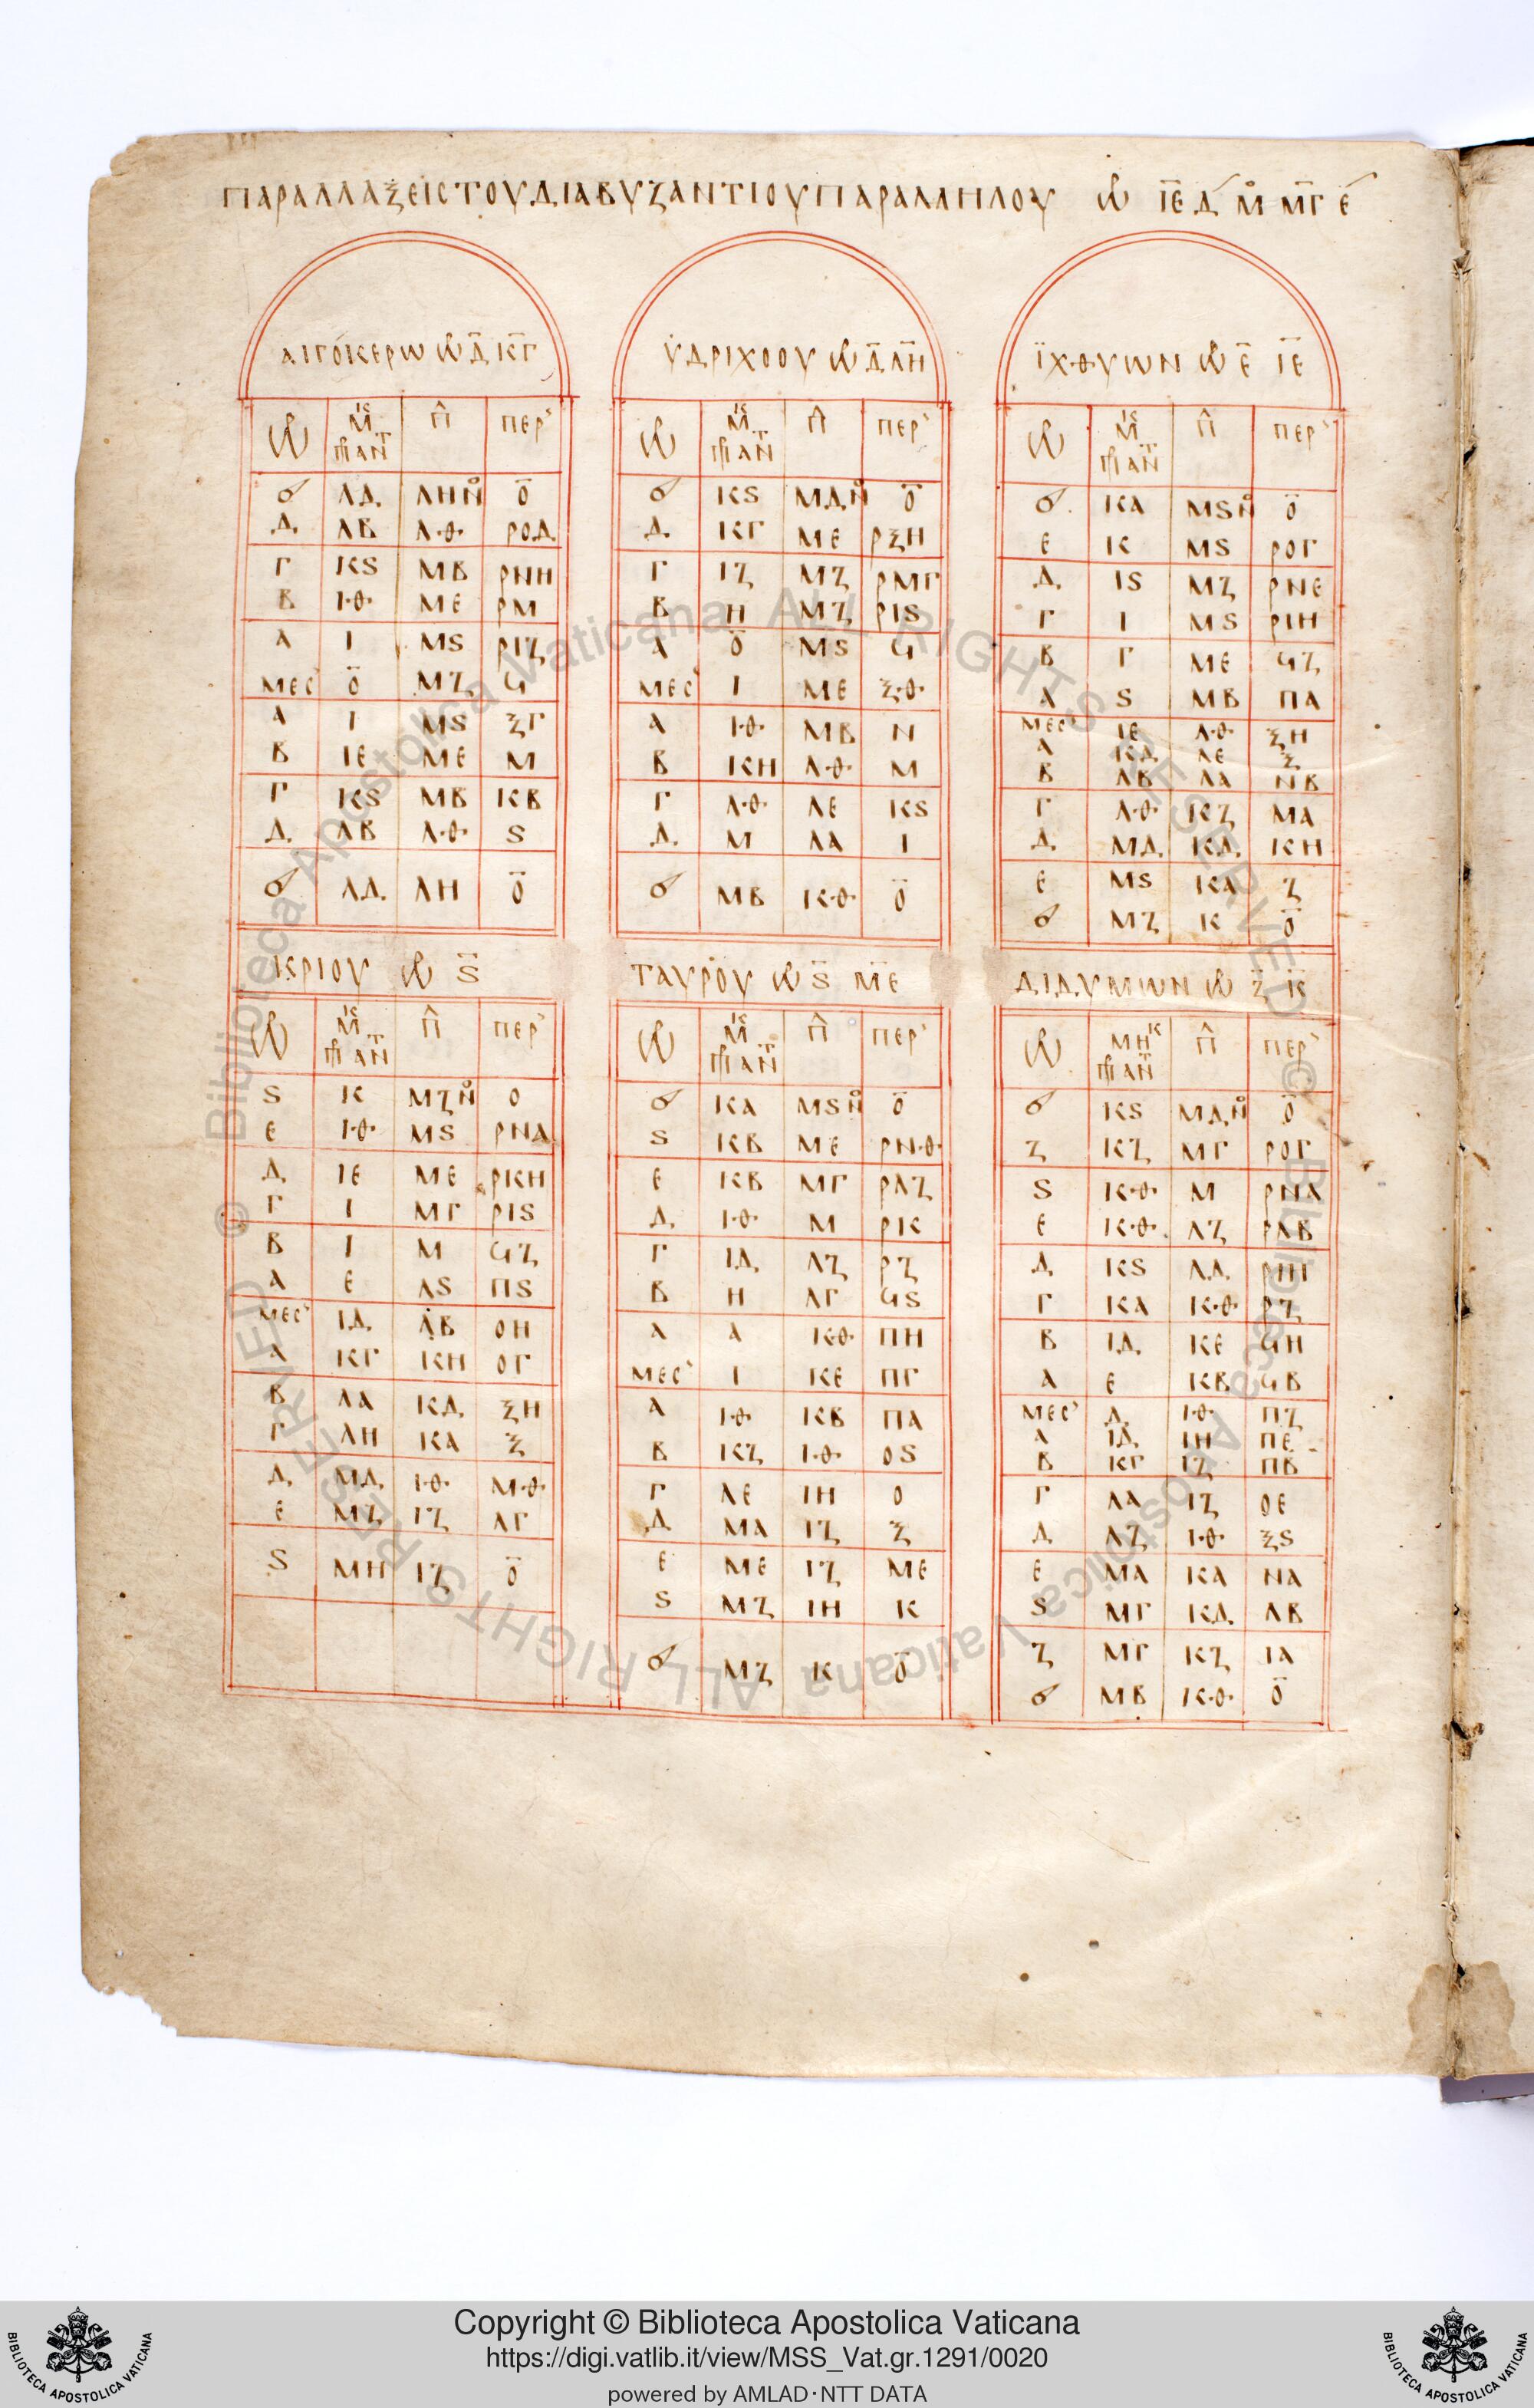 ΠΑΡΑΛΛΑΞΕΙΣ ΤΟΥ ΔΙΑ ΒΥΖΑΝΤΙΟΥ ΠΑΡΑΛΛΗΛΟΥ ΙΕ Δ ΜΓ Ε
ΑΙΓΟΚΕΡΩ Δ ΚΓ
ΠΕΡ
ΛΔ ΛΗ Ο
Δ ΛΒ ΛΘ ΡΟΔ
Γ ΚS ΜΒ ΡΝΗ
Β ΙΘ ΜΕ ΡΜ
Α Ι ΜS ΡΙΖ
ΜΕC Ο ΜΖ Ϥ
Α Ι ΜS ΞΓ
Β ΙΕ ΜΕ Μ
Γ ΚS ΜΒ ΚΒ
Δ ΛΒ ΛΘ S
ΛΔ ΛΗ Ο
ΥΔΡΙΧΟΟΥ Δ ΛΗ
ΠΕΡ
ΚS ΜΔ Ο
Δ ΚΓ ΜΕ ΡΞΗ
Γ ΙΖ ΜΖ ΡΜΓ
Β Η ΜΖ ΡΙS
Α Ο ΜS Ϥ
ΜΕC Ι ΜΕ ΞΘ
Α ΙΘ ΜΒ Ν
Β ΚΗ ΛΘ Μ
Γ ΛΘ ΛΕ ΚS
Δ Μ ΛΑ Ι
ΜΒ ΚΘ Ο
ΙΧΘΥΩΝ Ε ΙΕ
ΠΕΡ
ΚΑ ΜS Ο
Ε Κ ΜS ΡΟΓ
Δ ΙS ΜΖ ΡΝΕ
Γ Ι ΜS ΡΙΗ
Β Γ ΜΕ ϤΖ
Α S ΜΒ ΠΑ
ΜΕC ΙΕ ΛΘ ΞΗ
Α ΚΔ ΛΕ Ξ
Β ΛΒ ΛΑ ΝΒ
Γ ΛΘ ΚΖ ΜΑ
Δ ΜΔ ΚΔ ΚΗ
Ε ΜS ΚΑ Ζ
ΜΖ Κ Ο
ΚΡΙΟΥ S
ΠΕΡ
S Κ ΜΖ Ο
Ε ΙΘ ΜS ΡΝΑ
Δ ΙΕ ΜΕ ΡΚΗ
Γ Ι ΜΓ ΡΙS
Β Ι Μ ϤΖ
Α Ε ΛS ΠS
ΜΕC ΙΔ ΛΒ ΟΗ
Α ΚΓ ΚΗ ΟΓ
Β ΛΑ ΚΔ ΞΗ
Γ ΛΗ ΚΑ Ξ
Δ ΜΔ ΙΘ ΜΘ
Ε ΜΖ ΙΖ ΛΓ
S ΜΗ ΙΖ Ο
ΤΑΥΡΟΥ S ΜΕ
ΠΕΡ
ΚΑ ΜS Ο
S ΚΒ ΜΕ ΡΝΘ
Ε ΚΒ ΜΓ ΡΛΖ
Δ ΙΘ Μ ΡΚ
Γ ΙΔ ΛΖ ΡΖ
Β Η ΛΓ ϤS
Α Α ΚΘ ΠΗ
ΜΕC Ι ΚΕ ΠΓ
Α ΙΘ ΚΒ ΠΑ
Β ΚΖ ΙΘ ΟS
Γ ΛΕ ΙΗ Ο
Δ ΜΑ ΙΖ Ξ
Ε ΜΕ ΙΖ ΜΕ
S ΜΖ ΙΗ Κ
ΜΖ Κ Ο
ΔΙΔΥΜΩΝ Ζ Κ
ΠΕΡ
ΚS ΜΔ Ο
Ζ ΚΖ ΜΓ ΡΟΓ
S ΚΘ Μ ΡΝΑ
Ε ΚΘ ΛΖ ΡΛΒ
Δ ΚS ΛΔ
Γ ΚΑ ΚΘ ΡΖ
Β ΙΔ ΚΕ ϤΗ
Α Ε ΚΒ ϤΒ
ΜΕC Δ ΙΘ ΠΖ
Α ΙΔ ΙΗ ΠΕ
Β ΚΓ ΙΖ ΠΒ
Γ ΛΑ ΙΖ ΟΕ
Δ ΛΖ ΙΘ ΞS
Ε ΜΑ ΚΑ ΝΑ
S ΜΓ ΚΔ ΛΒ
Ζ ΜΓ ΚΖ ΙΑ
ΜΒ ΚΘ Ο
© Biblioteca Apostolica Vaticana ALL RIGHTS RESERVED
© Biblioteca Apostolica Vaticana ALL RIGHTS RESERVED
Copyright © Biblioteca Apostolica Vaticana
https://digi.vatlib.it/view/MSS_Vat.gr.1291/0020
powered by AMLAD·NTT DATA
BIBLIOTECA APOSTOLICA VATICANA
BIBLIOTECA APOSTOLICA VATICANA